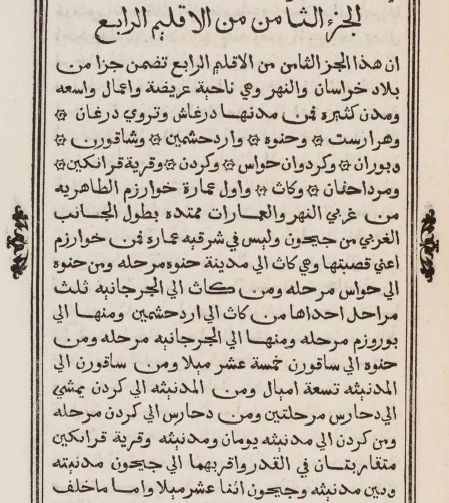 الجزء الثامن من الاقليم الرابع
ان هذا الجزء الثامن من الاقليم الرابع تضمن جزا من
بلاد خراسان والنهر وهي ناحية عريضة واعمال واسعه
ومدن كثيره فمن مدنها درغاش وتروي درغان
وهرارست وحنوه واردحشمين وشاقورن
وبوران وكردوان حواس وكردن وقرية قرانكين
ومرداحفان وكاث واول عمارة خوارزم الطاهريه
من غربي النهر والعمارات ممتده بطول الجانب
الغربي من جيحون وليس في شرقيه عماره فمن خوارزم
اعني قصبتها وهي كاث الي مدينة حنوه مرحله ومن حنوه
الي حواس مرحله ومن كاث الي الجرجانيه ثلث
مراحل احداها من كاث الي اردحشمين ومنها الي
بوروزم مرحله ومنها الي الجرجانيه مرحله ومن
حنوه الي ساقورن خمسة عشر ميلا ومن ساقورن الي
المدنيثه تسعة اميال ومن المدنيثه الي كردن يمشي
الي دحارس مرحلتين ومن دحارس الي كردن مرحله
ومن كردن الي مدنيثه يومان ومدنيثه وقرية قرانكين
متقاربتان في القدر واقربهما الي جيحون مدنيثه
وبين مدنيثه وجيحون اثنا عشر ميلا واما ما خلف